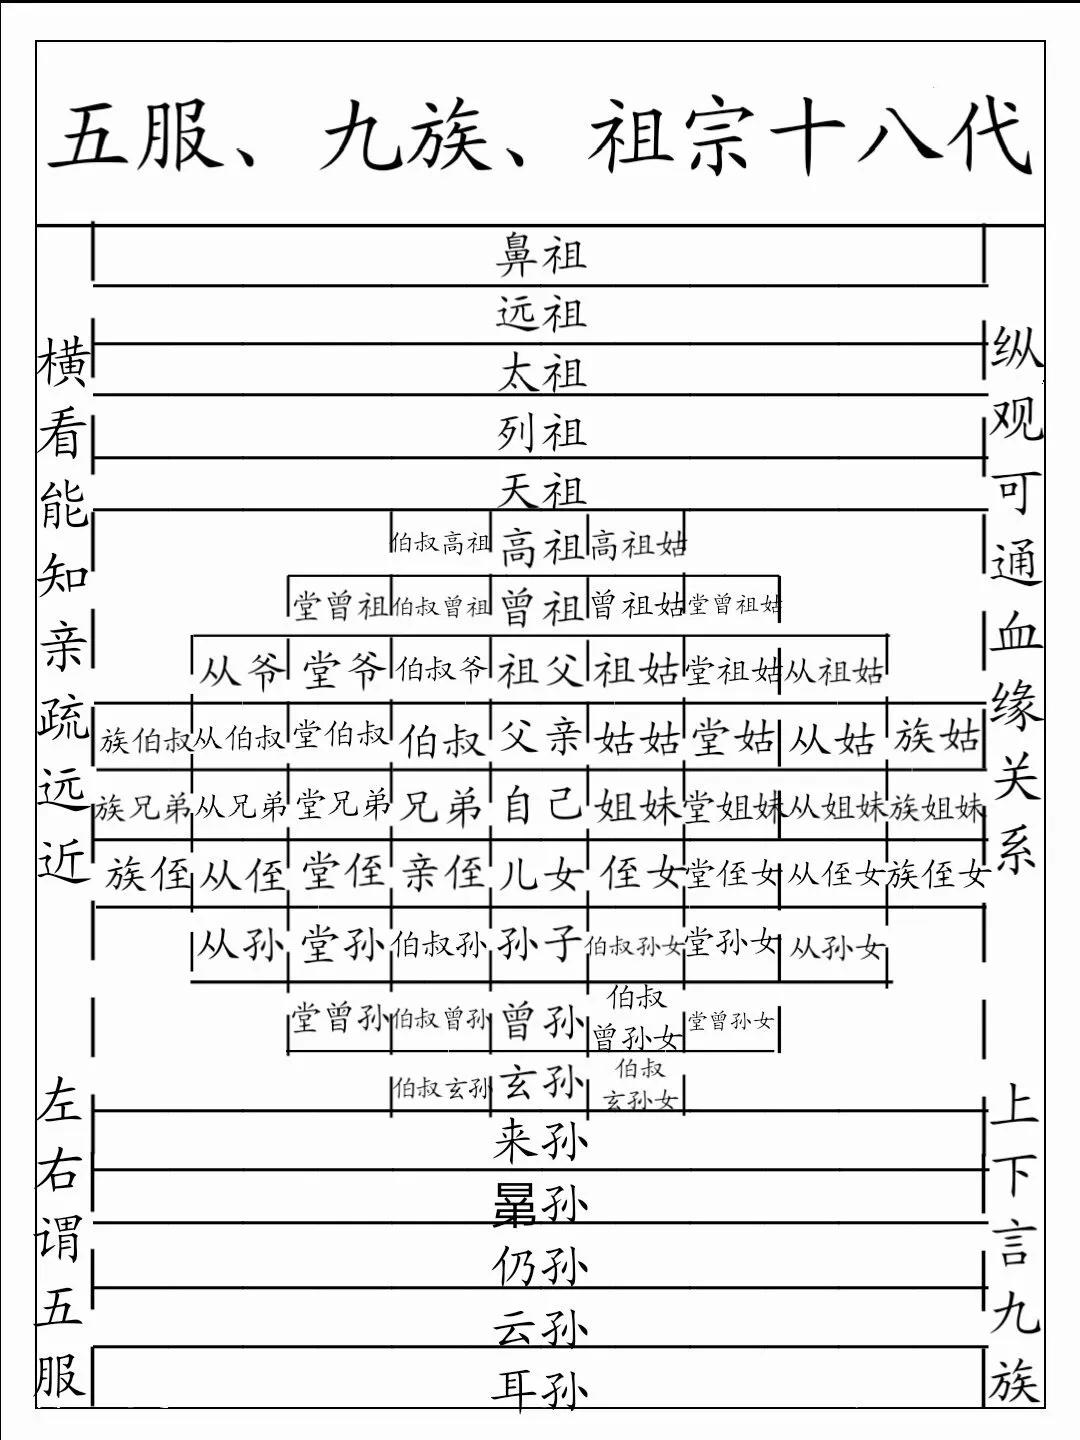 五服、九族、祖宗十八代
横看能知亲疏远近
左右谓五服
鼻祖
远祖
太祖
列祖
天祖
伯叔高祖 高祖 高祖姑
堂曾祖 伯叔曾祖 曾祖 曾祖姑 堂曾祖姑
从爷 堂爷 伯叔爷 祖父 祖姑 堂祖姑 从祖姑
族伯叔 从伯叔 堂伯叔 伯叔 父亲 姑姑 堂姑 从姑 族姑
族兄弟 从兄弟 堂兄弟 兄弟 自己 姐妹 堂姐妹 从姐妹 族姐妹
族侄 从侄 堂侄 亲侄 儿女 侄女 堂侄女 从侄女 族侄女
从孙 堂孙 伯叔孙 孙子 伯叔孙女 堂孙女 从孙女
堂曾孙 伯叔曾孙 曾孙 伯叔曾孙女 堂曾孙女
伯叔玄孙 玄孙 伯叔玄孙女
来孙
晜孙
仍孙
云孙
耳孙
纵观可通血缘关系
上下言九族